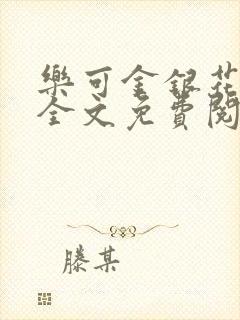 樂可金銀花
全文免費閱
滕某